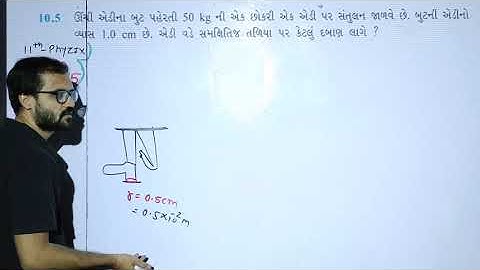 10.5 ઊંચી એડીના બુટ પહેરતી 50 kg ની એક છોકરી એક એડી પર સંતુલન જાળવે છે. બુટની એડીનો
વ્યાસ 1.0 cm છે. એડી વડે સમક્ષિતિજ તળિયા પર કેટલું દબાણ લાગે ?
11th Physix
5
r = 0.5cm
= 0.5x10⁻²m